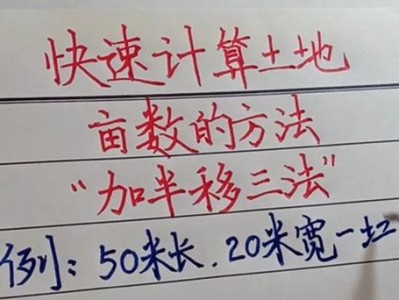 快速计算土地
亩数的方法
“加半移三法”
例：50米长.20米宽一块